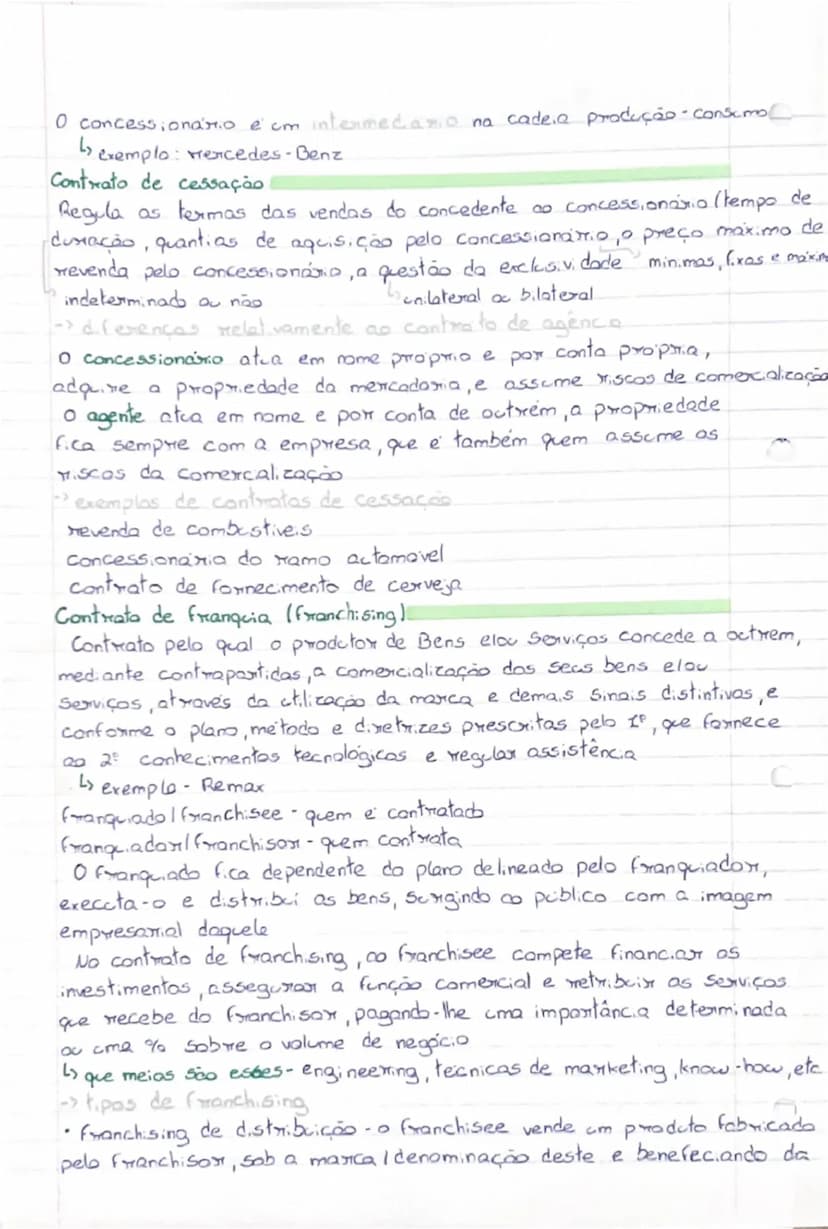 O concessionário é um intermedário na cadeia produção - consumo
↳ exemplo: Mercedes-Benz
Contrato de cessação
Regula as termas das vendas do concedente ao concessionário (tempo de
duração, quantias de aquisição pelo concessionário, o preço máximo de
revenda pelo concessionário, a questão da exclusividade minimas, fixas e máxim
indeterminado ou não ↳ unilateral ou bilateral
-> diferenças relativamente ao contrato de agênca
O concessionário atua em nome próprio e por conta própria,
adquire a propriedade da mercadoria, e assume riscos de comercialização
O agente atua em nome e por conta de outrém, a propriedade
fica sempre com a empresa, que é também quem assume os
riscos da comercalização
-> exemplos de contratos de cessação
revenda de combustíveis
concessionária do ramo automóvel
contrato de fornecimento de cerveja
Contrato de franquia (franchising)
Contrato pelo qual o produtor de Bens e/ou Serviços concede a outrem,
mediante contrapartidas, a comercialização dos seus bens e/ou
serviços, através da utilização da marca e demais sinais distintivos, e
conforme o plano, método e diretrizes prescritas pelo 1º, que fornece
ao 2º conhecimentos tecnológicos e regular assistência
↳ exemplo - Remax
franquiado/franchisee - quem é contratado
franquiador/franchisor - quem contrata
O franquiado fica dependente do plano delineado pelo franquiador,
executa-o e distribui os bens, surgindo ao público com a imagem
empresarial daquele
No contrato de franchising, ao franchisee compete financiar os
investimentos, assegurar a função comercial e retribuir os serviços
que recebe do franchisor, pagando-lhe uma importância determinada
ou uma % sobre o volume de negócio
↳ que meios são esses - engineering, técnicas de marketing, know-how, etc
-> tipos de franchising
• franchising de distribuição - o franchisee vende um produto fabricado
pelo franchisor, sob a marca/denominação deste e benefeciando da